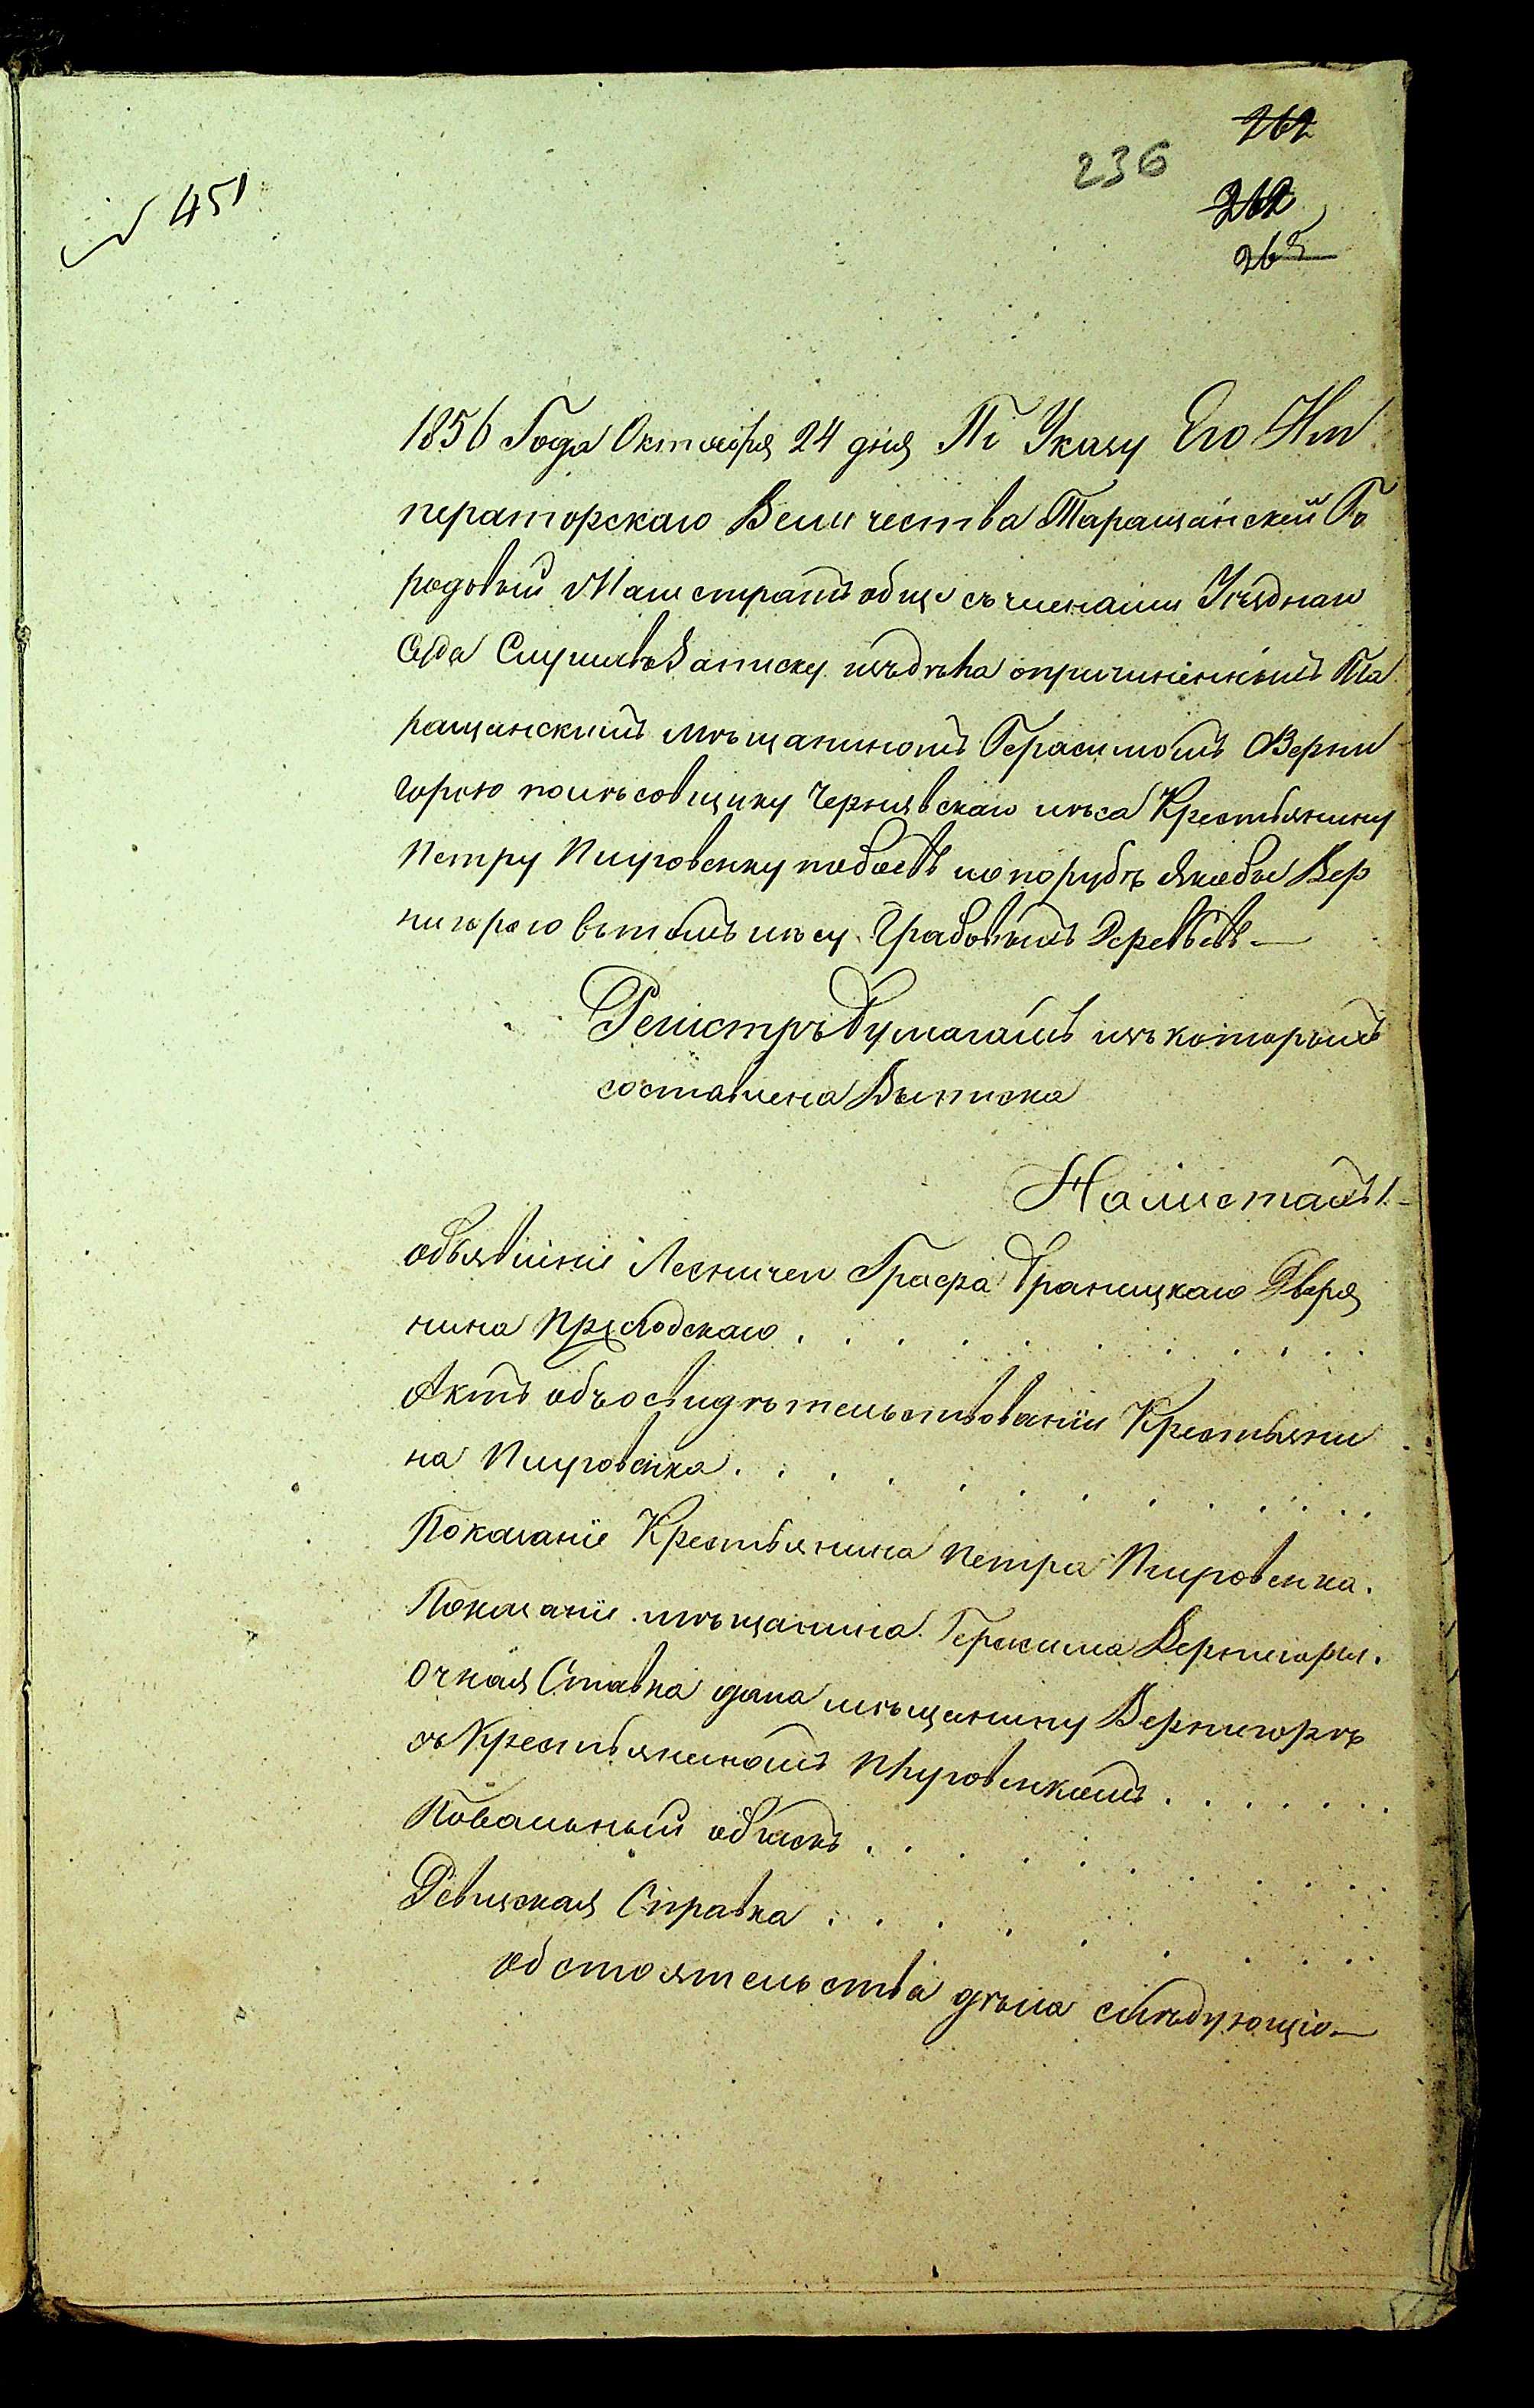 262
236
262
№ 451
265
1856 Года Октября 24 дня По Указу Его Им
ператорскаго Величества Таращанскій Го
родовый Магистратъ обще съ членами Уѣзднаго
Суда Слушалъ Записку изъ дѣла о причиненныхъ Та
ращанскимъ мѣщаниномъ Герасимомъ Верни
горою полѣсовщику Чернявскаго лѣса Крестьянину
Петру Пугровенку побоевъ и о порубкѣ якобы Вер
нигорою въ томъ лѣсу Грабовыхъ Деревъевъ
Регистръ бумагамъ изъ которыхъ
составлена Выписка
На листахъ
объявленіе Лесничего Графа Браницкаго Дворя
нина
Актъ объ освидѣтельствованіи Крестьяни
на Пугровенка
Показаніе Крестьянина Петра Пугровенка.
Показаніе мѣщанина Герасима Вернигоры.
Очная Ставка дана мѣщанину Вернигорѣ
съ Крестьяниномъ Пугровенкомъ
Повальный обыскъ
Ревизская Справка
обстоятельства дѣла слѣдующіе